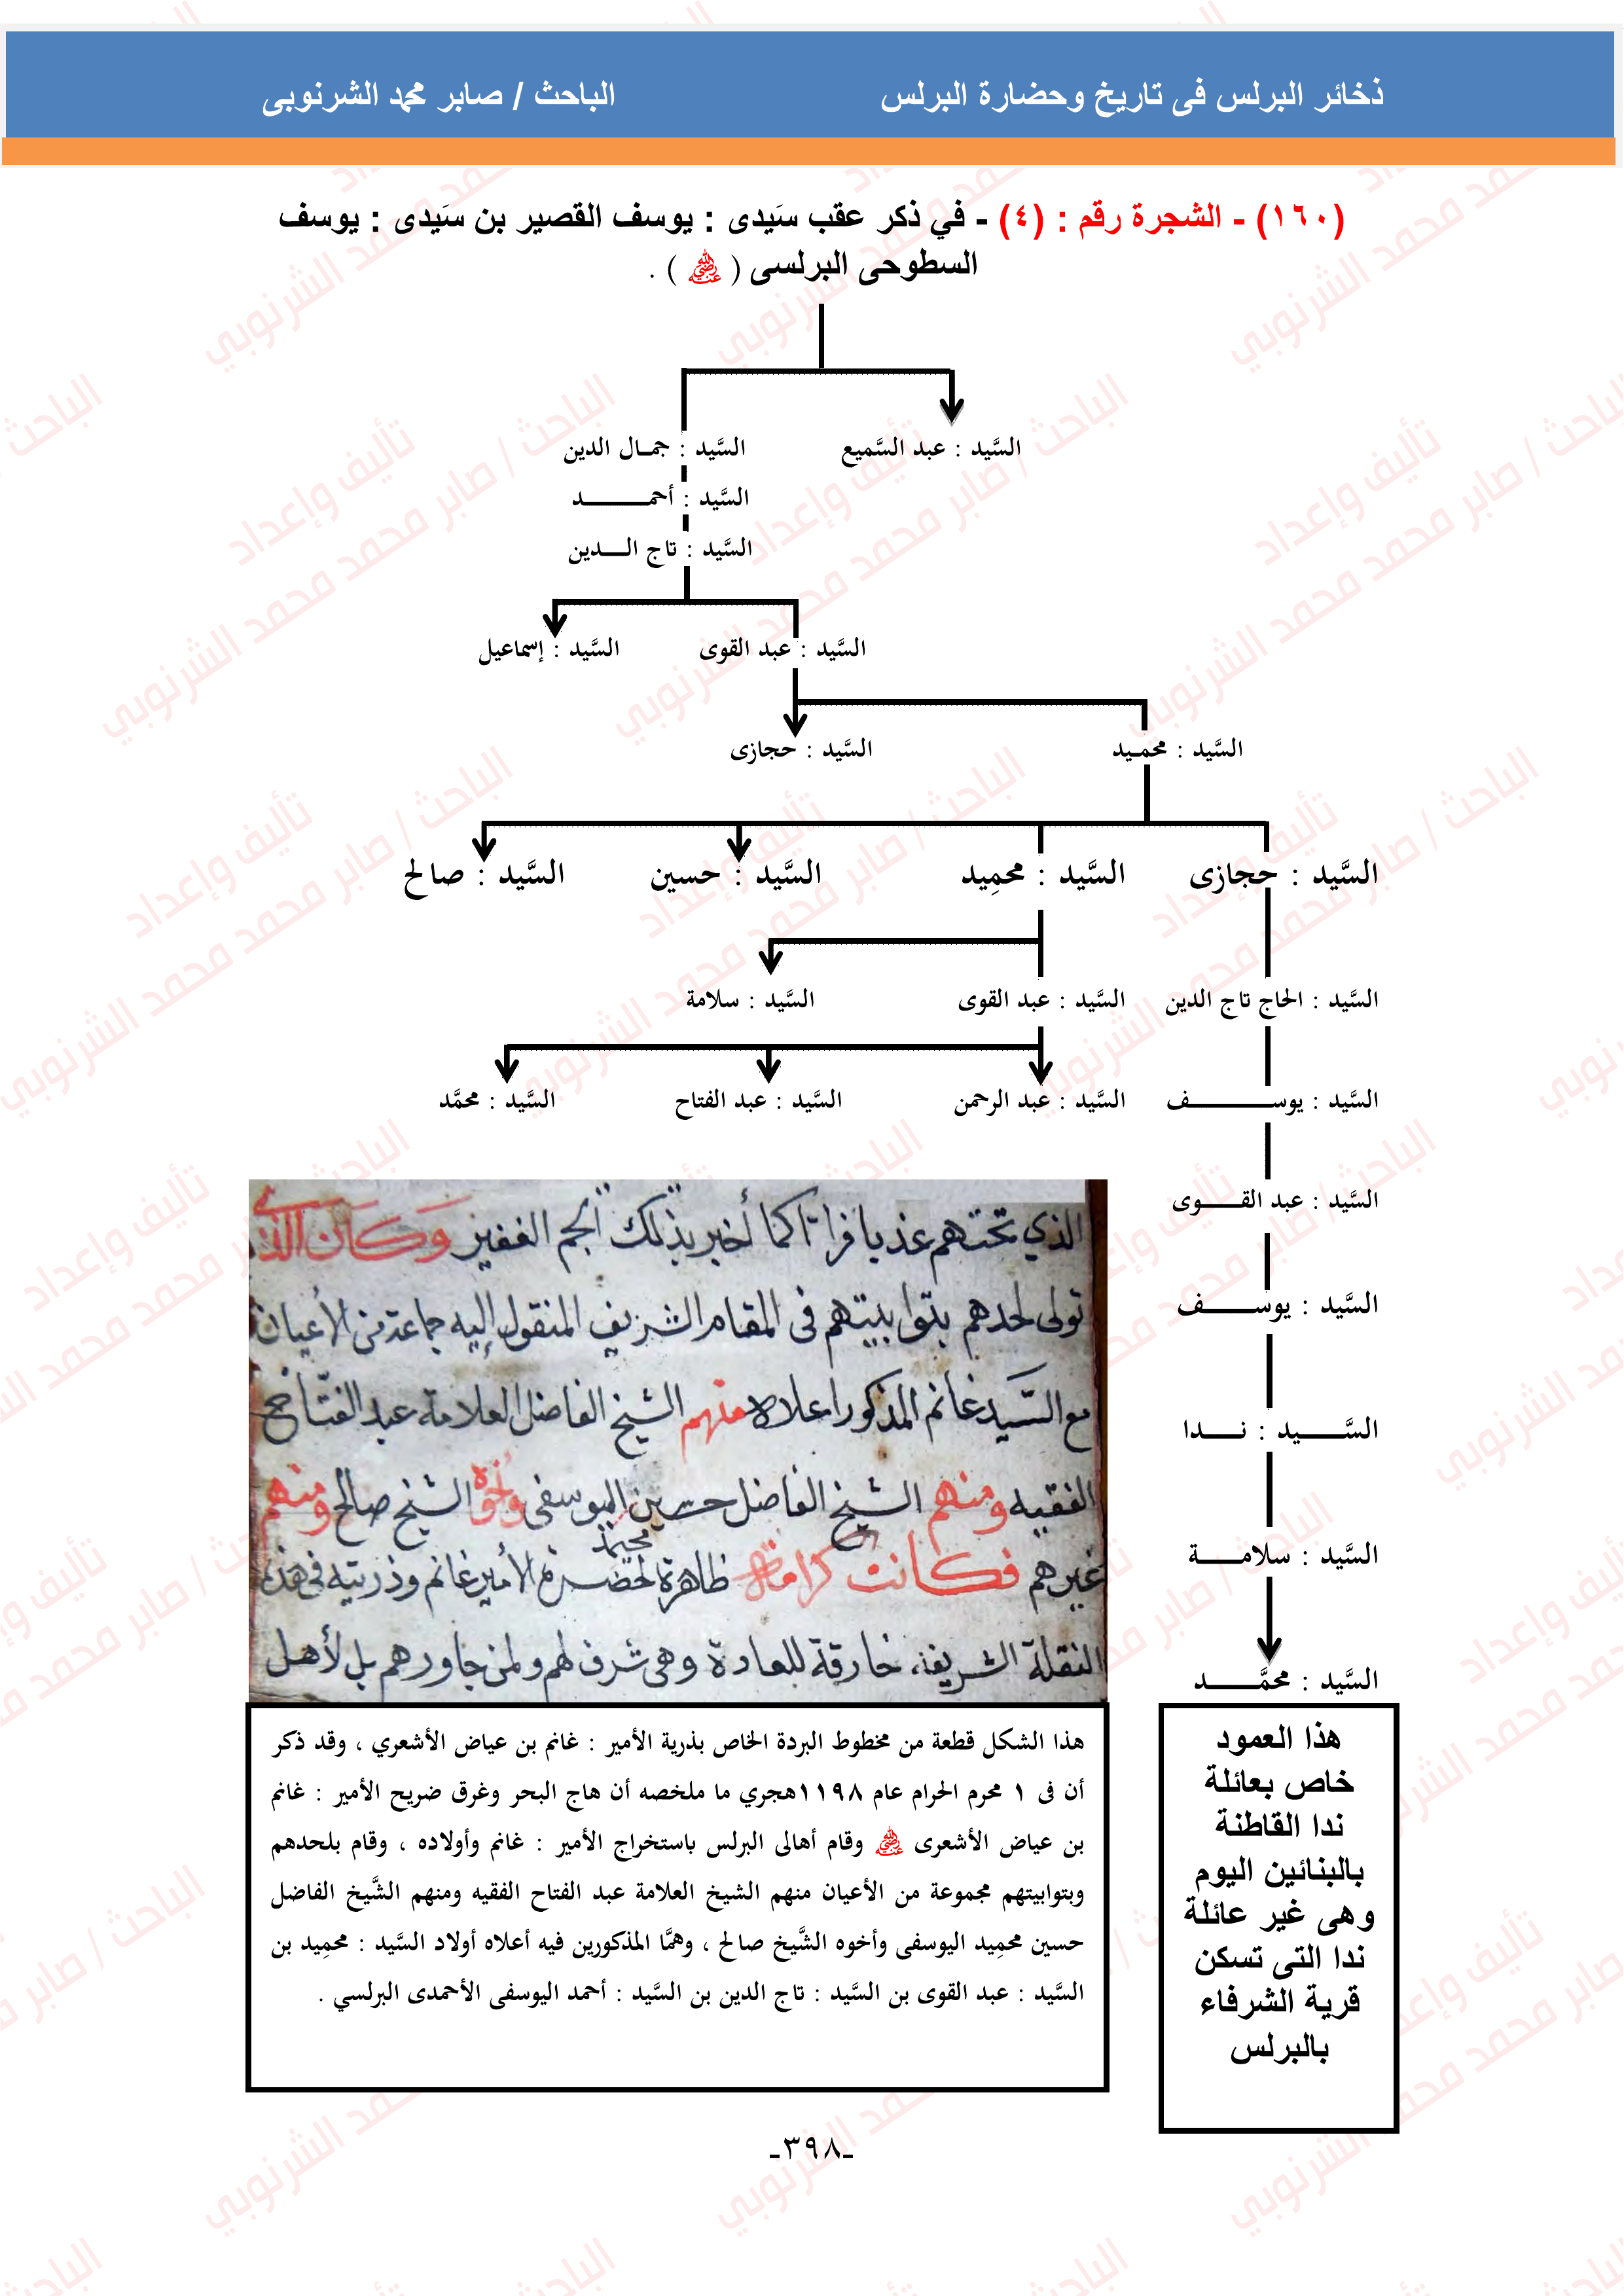 ذخائر البرلس فى تاريخ وحضارة البرلس الباحث / صابر محمد الشرنوبى
(١٦٠) - الشجرة رقم : (٤) - في ذكر عقب سَيدى : يوسف القصير بن سَيدى : يوسف
السطوحى البرلسى ( ﷁ ) .
السَّيد : عبد السَّميع السَّيد : جمـال الدين
السَّيد : أحمـــــــــد
السَّيد : تاج الـــدين
السَّيد : عبد القوى السَّيد : إسماعيل
السَّيد : محمـيد السَّيد : حجازى
السَّيد : حجازى السَّيد : محمِيد السَّيد : حسين السَّيد : صالح
السَّيد : الحاج تاج الدين السَّيد : عبد القوى السَّيد : سلامة
السَّيد : يوســـــــــف السَّيد : عبد الرحمن السَّيد : عبد الفتاح السَّيد : محمَّد
السَّيد : عبد القــــوى
السَّيد : يوســـــف
السَّــــيد : نـــــدا
السَّيد : سلامـــــة
السَّيد : محمَّــــــد
الذي تحتهم عذبا فراتا كما أخبر بذلك الجم الغفير وكان الذى
تولى لحدهم بتوابيتهم فى المقام الشريف المنقول إليه جماعة من الأعيان
مع السيد غانم المذكور اعلاه منهم الشيخ الفاضل العلامة عبد الفتاح
الفقيه ومنهم الشيخ الفاضل حسين اليوسفى وأخوه الشيخ صالح ومنهم
محيميد
غيرهم فكانت كرامة ظاهرة لحضرة الأمير غانم وذريته فى هذه
النقلة الشريفة خارقة للعادة وهى شرف لهم ولمن جاورهم بل لأهل
هذا الشكل قطعة من مخطوط البردة الخاص بذرية الأمير : غانم بن عياض الأشعري ، وقد ذكر
أن فى ١ محرم الحرام عام ١١٩٨هجري ما ملخصه أن هاج البحر وغرق ضريح الأمير : غانم
بن عياض الأشعرى ﷁ وقام أهالى البرلس باستخراج الأمير : غانم وأولاده ، وقام بلحدهم
وبتوابيتهم مجموعة من الأعيان منهم الشيخ العلامة عبد الفتاح الفقيه ومنهم الشَّيخ الفاضل
حسين محمِيد اليوسفى وأخوه الشَّيخ صالح ، وهمَّا المذكورين فيه أعلاه أولاد السَّيد : محمِيد بن
السَّيد : عبد القوى بن السَّيد : تاج الدين بن السَّيد : أحمد اليوسفى الأحمدى البرلسي .
هذا العمود
خاص بعائلة
ندا القاطنة
بالبنائين اليوم
وهى غير عائلة
ندا التى تسكن
قرية الشرفاء
بالبرلس
-٣٩٨-
تأليف وإعداد
الباحث / صابر محمد محمد الشرنوبي